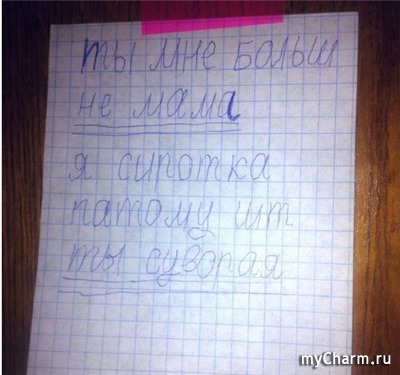 ты мне больш
не мама
я сиротка
патому шт
ты суворая
myCharm.ru